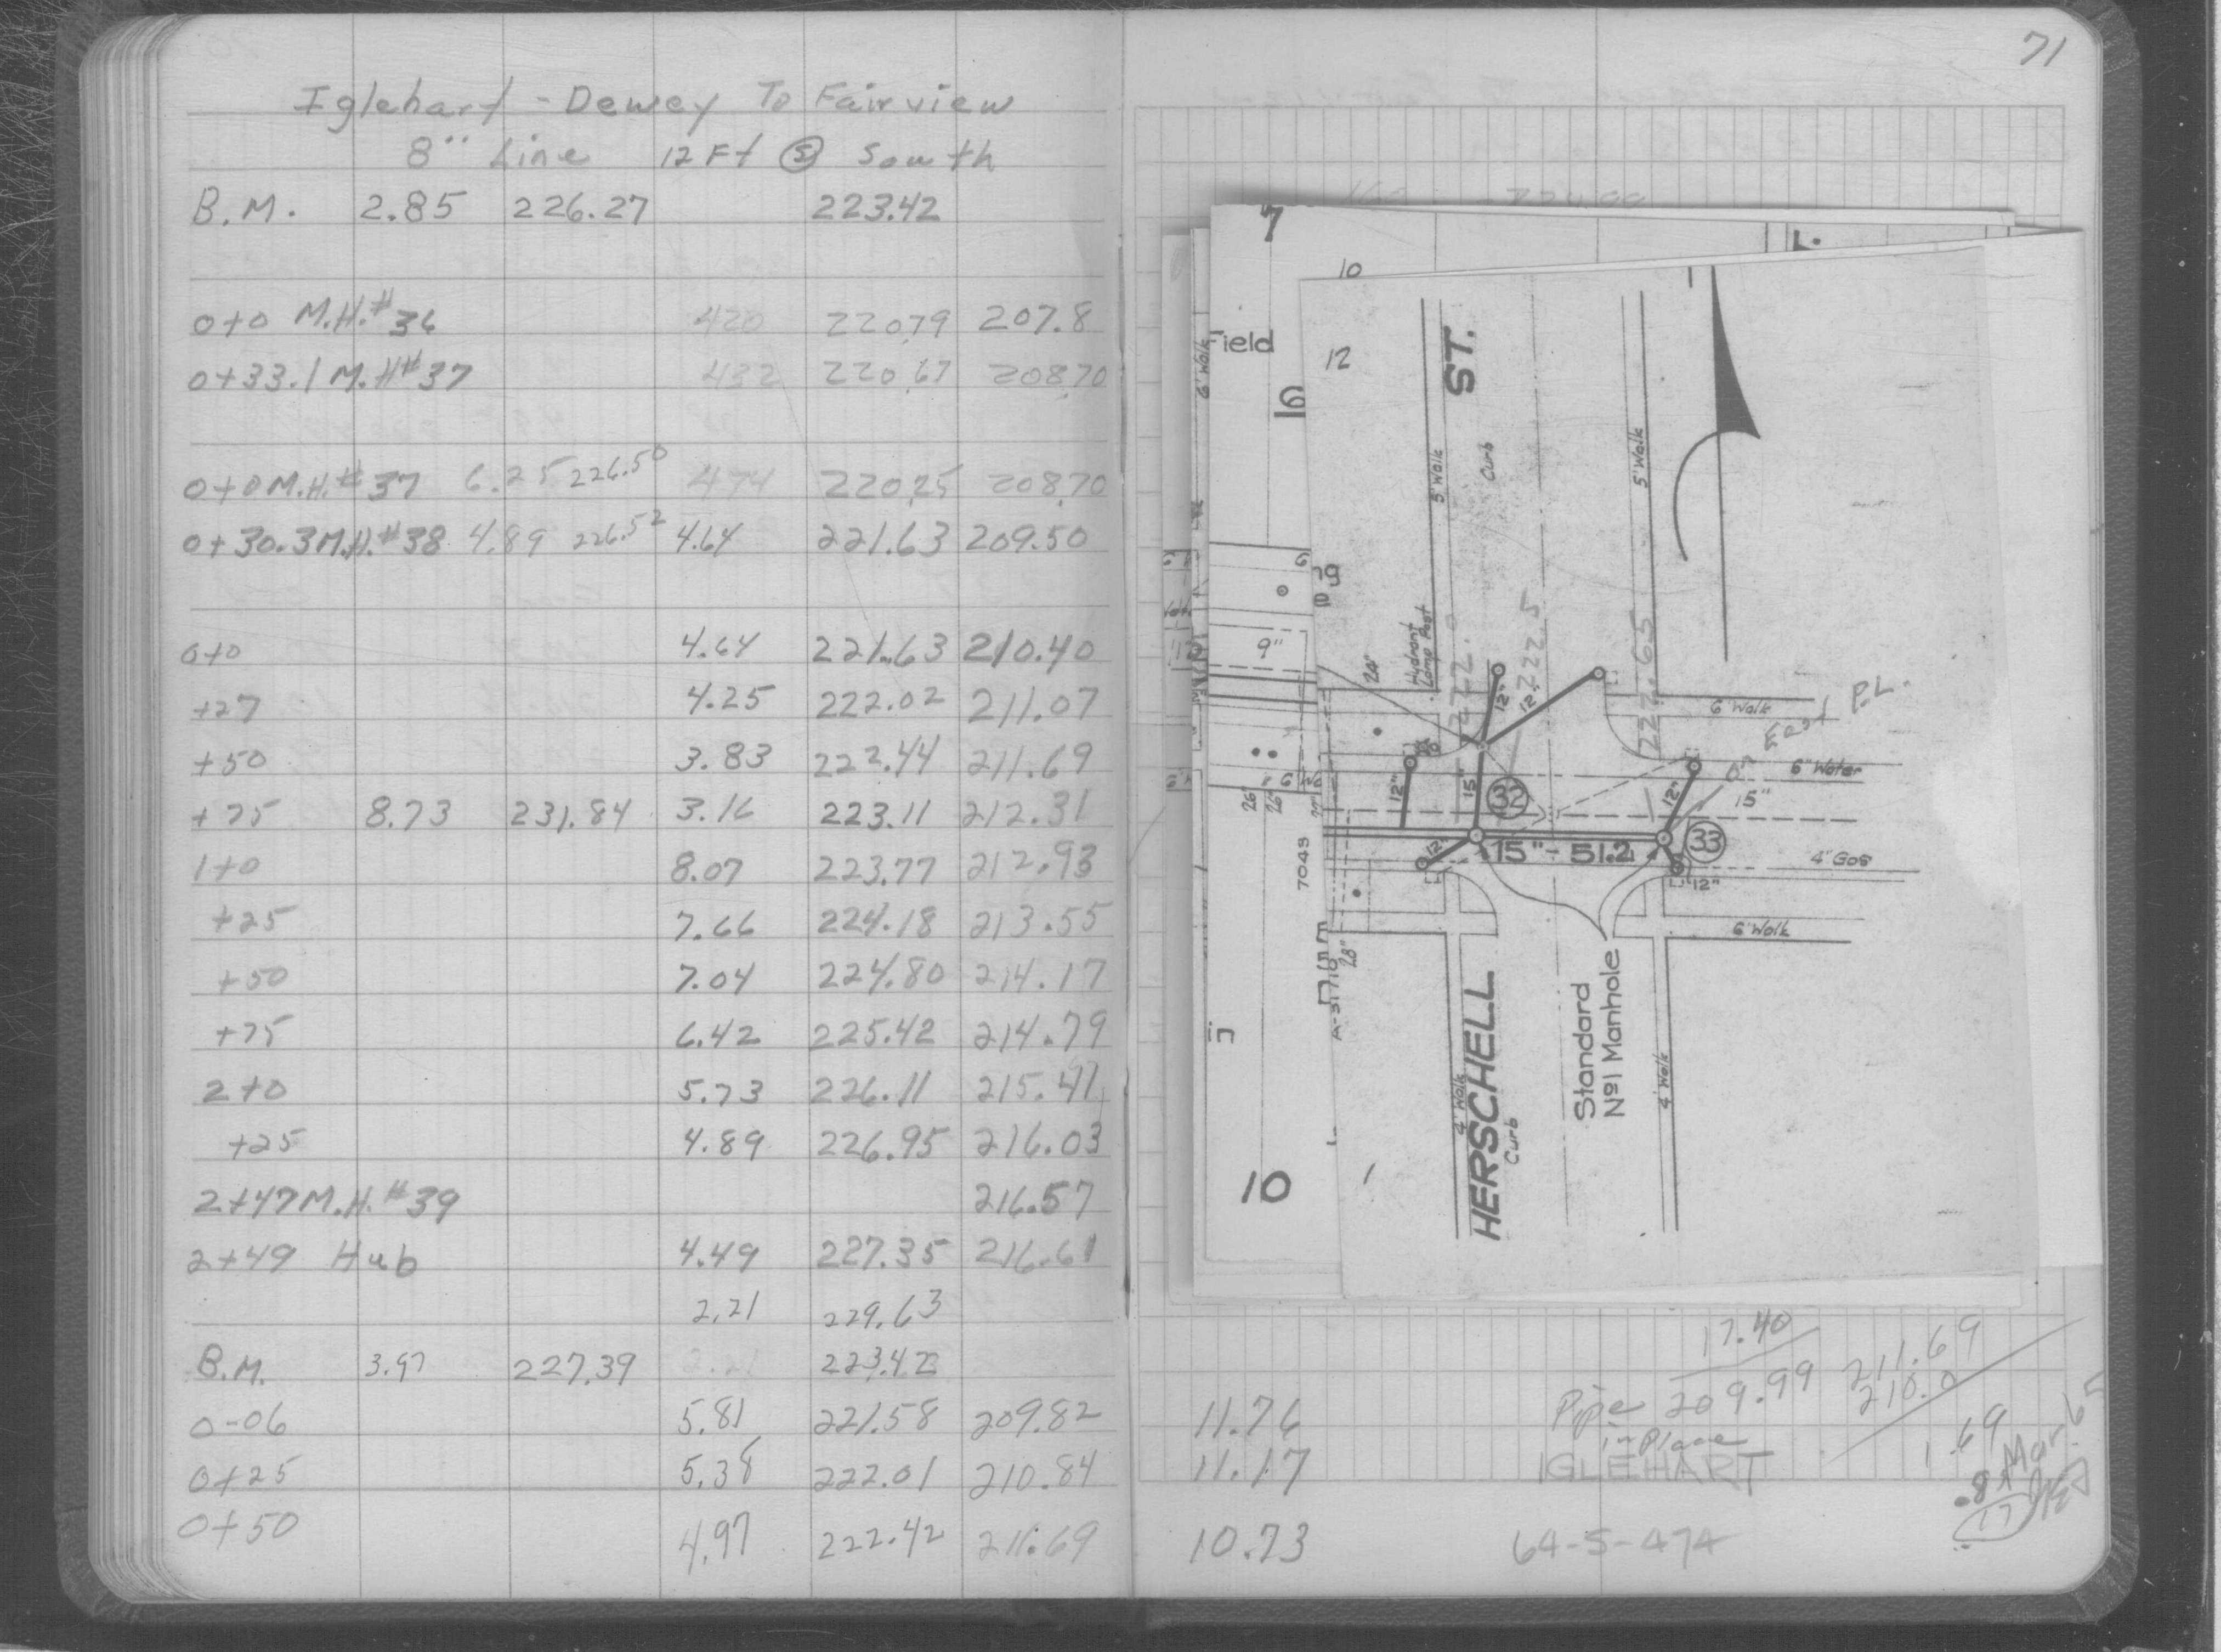 Iglehart - Dewey To Fairview
8" Line 12 Ft Ⓢ South
B.M. 2.85 226.27 223.42
0+0 M.H.# 36 420 220.79 207.8
0+33.1 M.H# 37 432 220.67 208.70
0+0 M.H.# 37 6.25 226.50 474 220.25 208.70
0+30.3 M.H.# 38 4.89 226.52 4.64 221.63 209.50
0+0 4.64 221.63 210.40
+27 4.25 222.02 211.07
+50 3.83 222.44 211.69
+75 8.73 231.84 3.16 223.11 212.31
1+0 8.07 223.77 212.93
+25 7.66 224.18 213.55
+50 7.04 224.80 214.17
+75 6.42 225.42 214.79
2+0 5.73 226.11 215.41
+25 4.89 226.95 216.03
2+47 M.H.# 39 216.57
2+49 Hub 4.49 227.35 216.61
2.21 229.63
B.M. 3.97 227.39 223.42
0-06 5.81 221.58 209.82
0+25 5.38 222.01 210.84
0+50 4.97 222.42 211.69
71
7
10
Field
12
6' Walk
16
ST.
Curb
5' Walk
5' Walk
9"
24"
Hydrant
Lamp Post
222.0
222.5
222.65
12"
12"
6' Walk
East P.L.
6" Water
12"
15"
32
12"
15"
26'
26'
12"
15" - 51.2
33
4" Gas
12"
7043
6' Walk
28"
A-31710
HERSCHELL
4' Walk
Curb
Standard
Nº1 Manhole
4' Walk
10
1
17.40
Pipe 209.99
in Place
211.69
210.0
1.69
11.76
11.17
IGLEHART
10.73
64-S-474